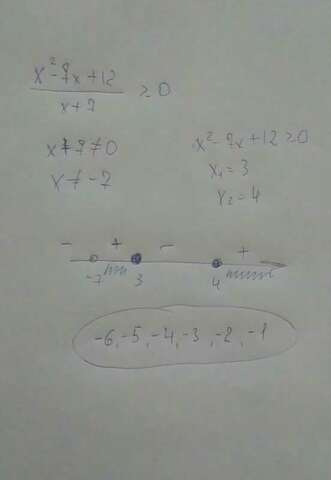 x²-7x+12
x+7
≥ 0
x+7≠0
x≠-7
x²-7x+12≥0
x₁=3
x₂=4
- + - +
-7 3 4
-6,-5,-4,-3,-2,-1